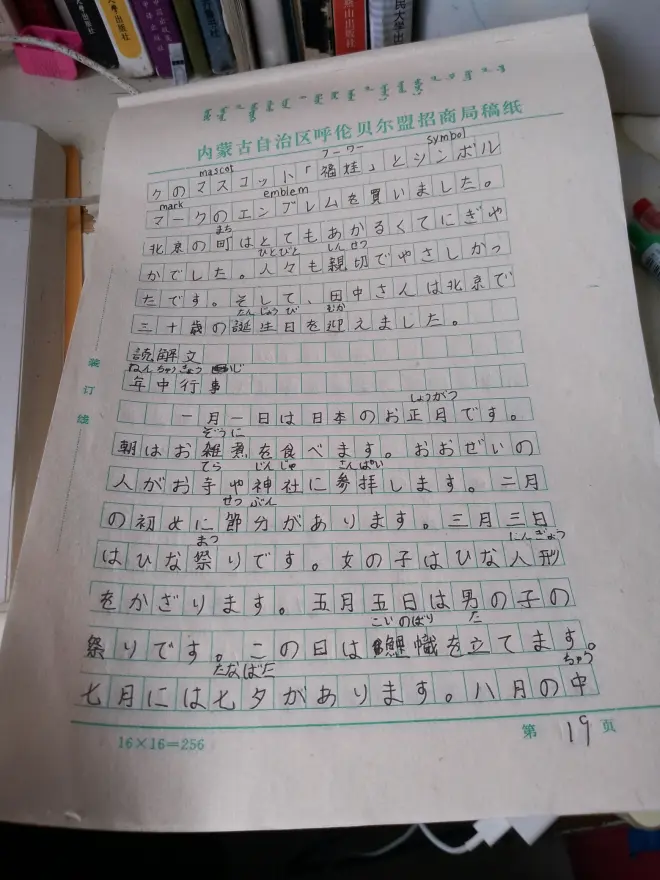 内蒙古自治区呼伦贝尔盟招商局稿纸
mascot フーワー symbol
クのマスコット「福娃」とシンボル
mark emblem
マークのエンブレムを買いました。
まち
北京の町はとてもあかるくてにぎや
ひとびと しんせつ
かでした。人々も親切でやさしかっ
たです。そして、田中さんは北京で
たんじょうび むか
三十歳の誕生日を迎えました。
読解文
ねんちゅうぎょうじ
年中行事
しょうがつ
一月一日は日本のお正月です。
ぞうに
朝はお雑煮を食べます。おおぜいの
てら じんじゃ さんぱい
人がお寺や神社に参拝します。二月
せつぶん
の初めに節分があります。三月三日
まつ にんぎょう
はひな祭りです。女の子はひな人形
をかざります。五月五日は男の子の
こいのぼり た
祭りです。この日は鯉幟を立てます。
たなばた ちゅう
七月には七夕があります。八月の中
装订线
16×16=256
第19页